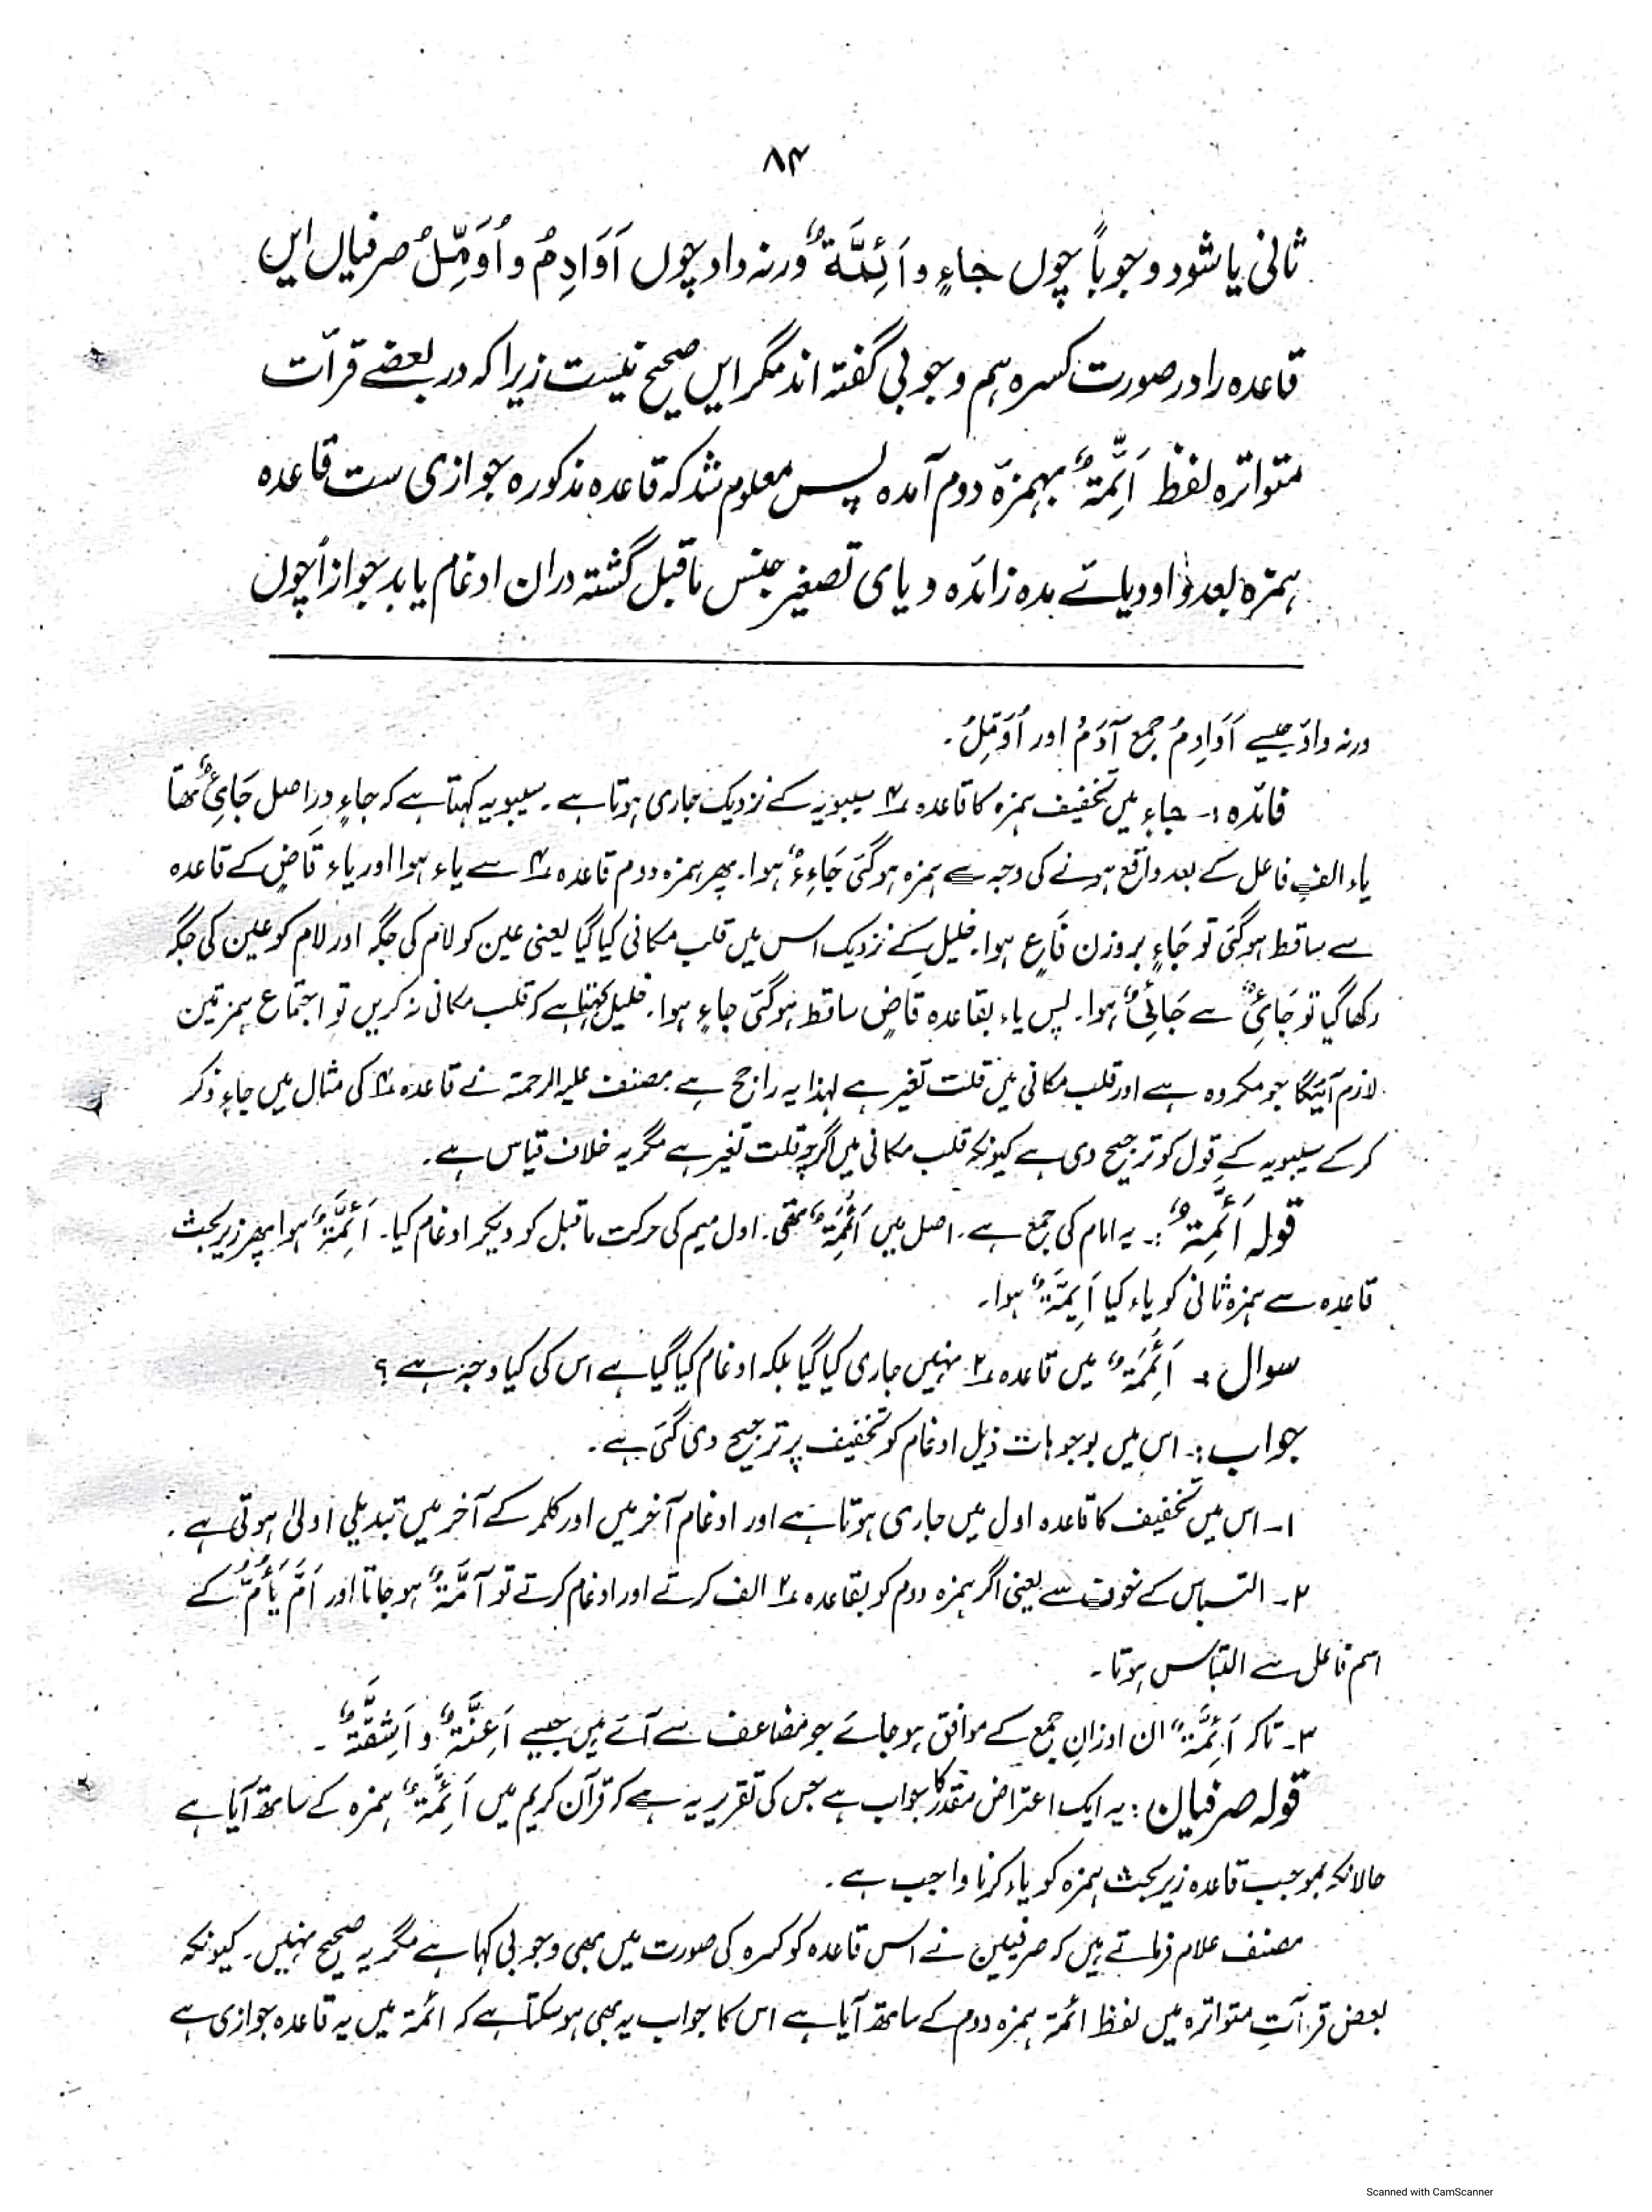 ۸۴
ثانی یا شود وجوباً چوں جاءٍ و اَئِمَّةٌ ورنہ واو چوں اَوَادِمُ و اُوَمِّلُ صرفیاں ایں
قاعدہ را در صورت کسرہ ہم وجوبی گفتہ اند مگر ایں صحیح نیست زیرا کہ در بعضے قرآت
متواترہ لفظ اَئِمَّةٌ بہمزۂ دوم آمدہ پس معلوم شد کہ قاعدہ مذکورہ جوازی ست قاعدہ
ہمزہ بعد واو ویائے مدہ زائدہ و یای تصغیر جنس ماقبل گشتہ دران ادغام یابد جوازاً چوں
ورنہ واؤ جیسے اَوَادِمُ جمع آدَمُ اور اُوَمِّلُ۔
فائدہ :۔ جاءٍ میں تخفیف ہمزہ کا قاعدہ ۴؎ سیبویہ کے نزدیک جاری ہوتا ہے۔ سیبویہ کہتا ہے کہ جاءٍ دراصل جَايِئٌ تھا
یاء الف فاعل کے بعد واقع ہونے کی وجہ سے ہمزہ ہو گئی جَاءِءٌ ہوا۔ پھر ہمزہ دوم قاعدہ ۴؎ سے یاء ہوا اور یاء قَاضٍ کے قاعدہ
سے ساقط ہو گئی تو جَاءٍ بروزن فَاعٍ ہوا۔ خلیل کے نزدیک اس میں قلب مکانی کیا گیا یعنی عین کو لام کی جگہ اور لام کو عین کی جگہ
رکھا گیا تو جَايِئٌ سے جَائِيٌ ہوا۔ پس یاء بقاعدہ قَاضٍ ساقط ہو گئی جاءٍ ہوا۔ خلیل کہتا ہے کہ قلب مکانی نہ کریں تو اجتماع ہمزتین
لازم آئیگا جو مکروہ ہے اور قلب مکانی میں قلت تغیر ہے لہذا یہ راجح ہے۔ مصنف علیہ الرحمۃ نے قاعدہ ۴؎ کی مثال میں جاءٍ ذکر
کر کے سیبویہ کے قول کو ترجیح دی ہے کیونکہ قلب مکانی میں اگرچہ قلت تغیر ہے مگر یہ خلاف قیاس ہے۔
قولہ اَئِمَّةٌ :۔ یہ امام کی جمع ہے۔ اصل میں اَئْمِمَةٌ تھی۔ اول میم کی حرکت ماقبل کو دیکر ادغام کیا۔ اَئِمَّةٌ ہوا پھر زیر بحث
قاعدہ سے ہمزہ ثانی کو یاء کیا اَيِمَّةٌ ہوا۔
سوال :۔ اَئِمَّةٌ میں قاعدہ ۲؎ نہیں جاری کیا گیا بلکہ ادغام کیا گیا ہے اس کی کیا وجہ ہے؟
جواب :۔ اس میں بوجوہات ذیل ادغام کو تخفیف پر ترجیح دی گئی ہے۔
۱۔ اس میں تخفیف کا قاعدہ اول میں جاری ہوتا ہے اور ادغام آخر میں اور کلمہ کے آخر میں تبدیلی اولیٰ ہوتی ہے۔
۲۔ التباس کے خوف سے یعنی اگر ہمزہ دوم کو بقاعدہ ۲؎ الف کرتے اور ادغام کرتے تو آمَّةٌ ہو جاتا اور اَمَّ یَأُمُّ کے
اسم فاعل سے التباس ہوتا۔
۳۔ تاکہ اَئِمَّةٌ ان اوزانِ جمع کے موافق ہو جائے جو مضاعف سے آئے ہیں جیسے اَعِنَّةٌ و اَشِقَّةٌ۔
قولہ صرفیان : یہ ایک اعتراض مقدر کا جواب ہے جس کی تقریر یہ ہے کہ قرآن کریم میں اَئِمَّةٌ ہمزہ کے ساتھ آیا ہے
حالانکہ بموجب قاعدہ زیر بحث ہمزہ کو یاء کرنا واجب ہے۔
مصنف علام فرماتے ہیں کہ صرفیین نے اس قاعدہ کو کسرہ کی صورت میں بھی وجوبی کہا ہے مگر یہ صحیح نہیں۔ کیونکہ
بعض قرآتِ متواترہ میں لفظ ائمۃ ہمزہ دوم کے ساتھ آیا ہے اس کا جواب یہ بھی ہو سکتا ہے کہ ائمۃ میں یہ قاعدہ جوازی ہے
Scanned with CamScanner